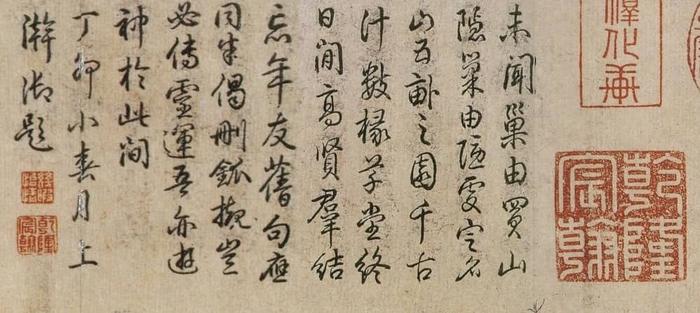 淳化軒
乾隆宸翰
未聞巢由買山
隱巢由隱處定名
山五畝之園千古
計數椽草堂終
日閒高賢羣結
忘年友舊句應
同半偈刪豈
必傳靈運吾亦遊
神於此間
丁卯小春月上
澣御題